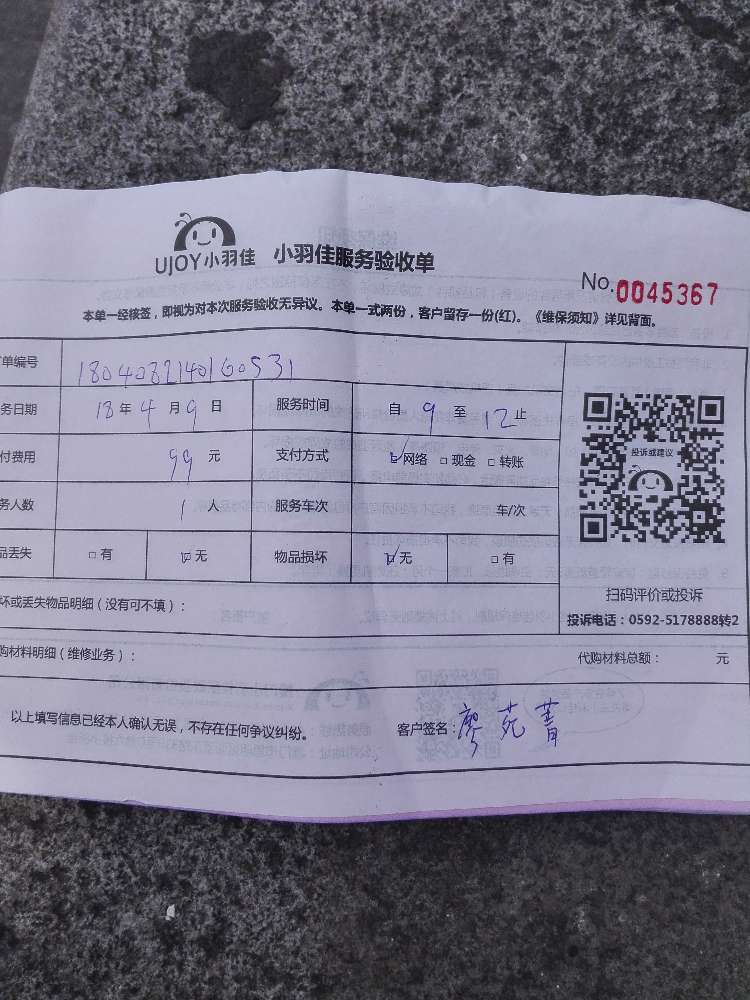 UJOY小羽佳 小羽佳服务验收单
No.0045367
本单一经核签，即视为对本次服务验收无异议。本单一式两份，客户留存一份(红)。《维保须知》详见背面。
单编号 1804082140160531
务日期 18年4月9日 服务时间 自9至12止
付费用 99元 支付方式 ☑网络 □现金 □转账
务人数 1人 服务车次 车/次
品丢失 □有 ☑无 物品损坏 ☑无 □有
投诉或建议
扫码评价或投诉
投诉电话：0592-5178888转2
坏或丢失物品明细（没有可不填）：
购材料明细（维修业务）： 代购材料总额： 元
以上填写信息已经本人确认无误，不存在任何争议纠纷。 客户签名：廖苑菁